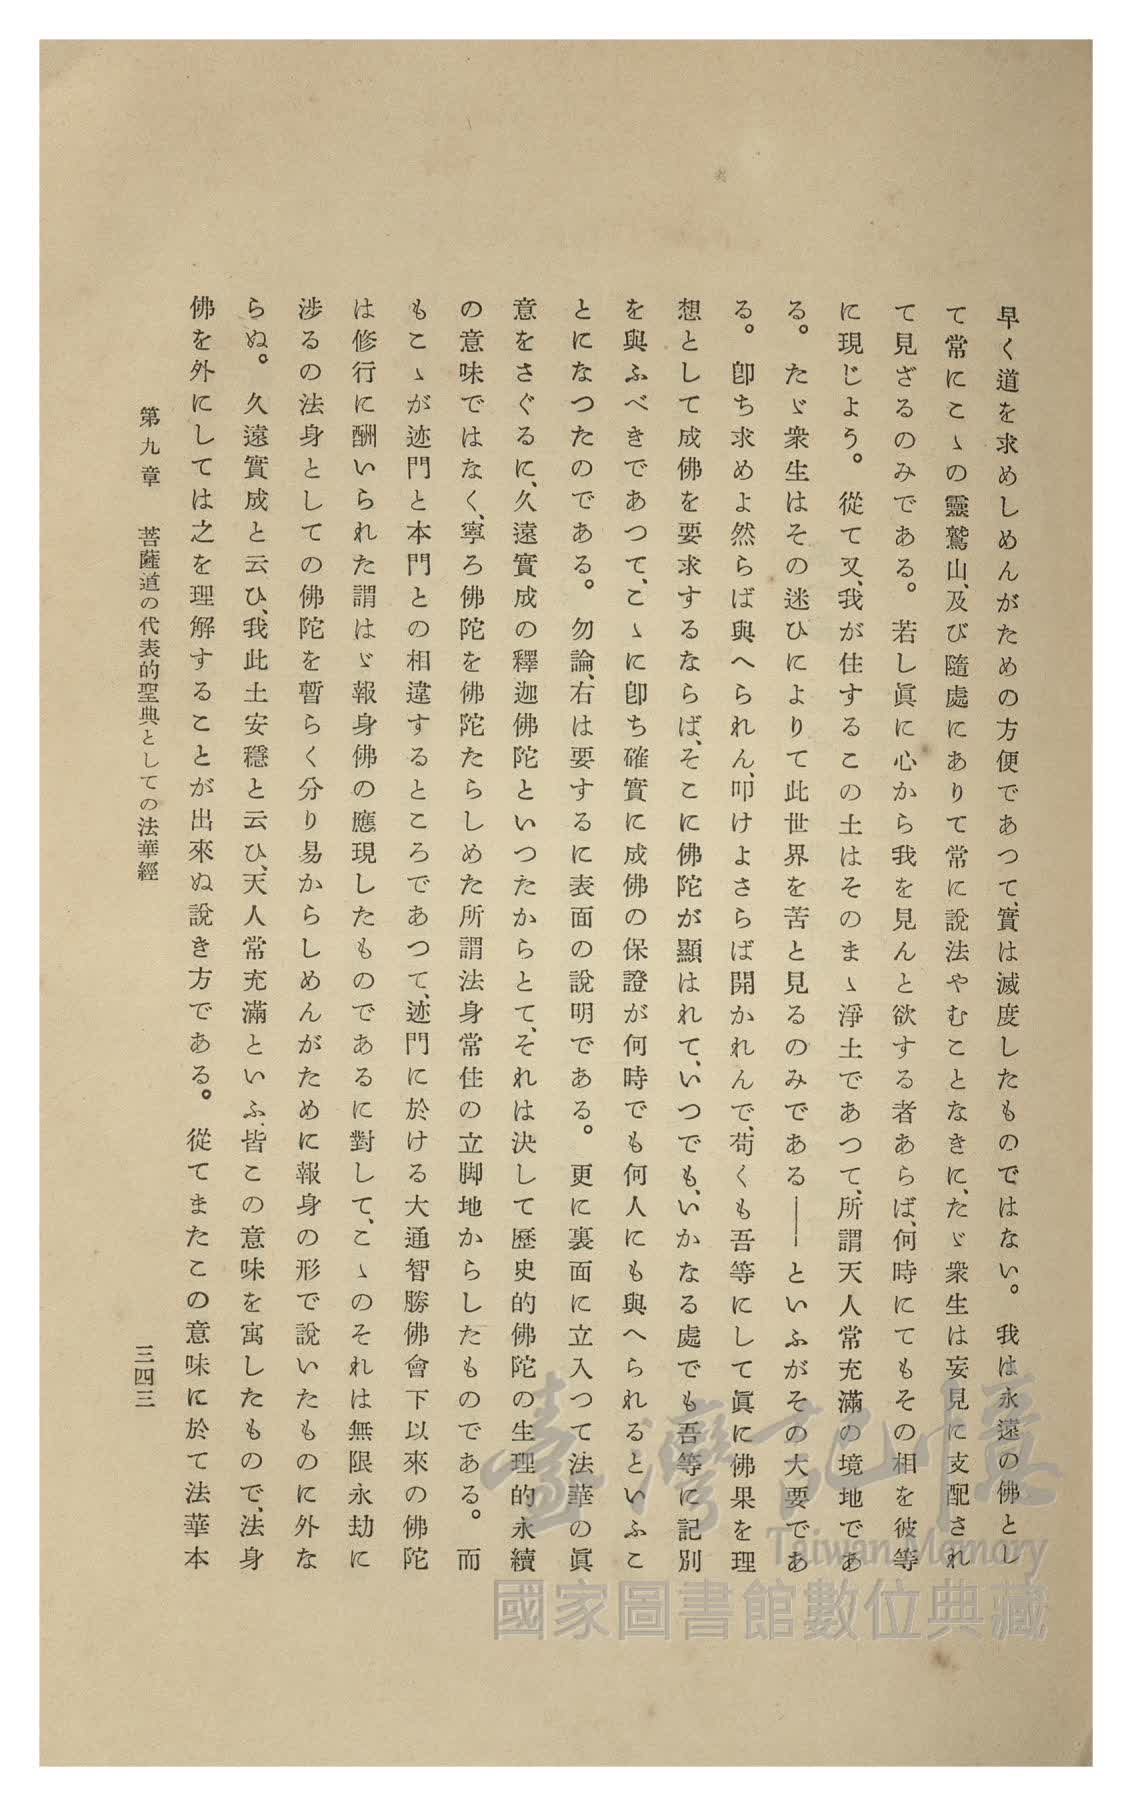 早く道を求めしめんがための方便であつて、實は滅度したものではない。　我は永遠の佛とし
て常にこゝの靈鷲山、及び隨處にありて常に說法やむことなきに、たゞ衆生は妄見に支配され
て見ざるのみである。　若し眞に心から我を見んと欲する者あらば、何時にてもその相を彼等
に現じよう。　從て又、我が住するこの土はそのまゝ淨土であつて、所謂天人常充滿の境地であ
る。　たゞ衆生はその迷ひによりて此世界を苦と見るのみである――といふがその大要であ
る。　卽ち求めよ然らば與へられん、叩けよさらば開かれんで、苟くも吾等にして眞に佛果を理
想として成佛を要求するならば、そこに佛陀が顯はれて、いつでも、いかなる處でも吾等に記別
を與ふべきであつて、こゝに卽ち確實に成佛の保證が何時でも何人にも與へられるといふこ
とになつたのである。　勿論、右は要するに表面の說明である。　更に裏面に立入つて法華の眞
意をさぐるに、久遠實成の釋迦佛陀といつたからとて、それは決して歷史的佛陀の生理的永續
の意味ではなく、寧ろ佛陀を佛陀たらしめた所謂法身常住の立脚地からしたものである。　而
もこゝが迹門と本門との相違するところであつて、迹門に於ける大通智勝佛會下以來の佛陀
は修行に酬いられた謂はゞ報身佛の應現したものであるに對して、こゝのそれは無限永劫に
涉るの法身としての佛陀を暫らく分り易からしめんがために報身の形で說いたものに外な
らぬ。　久遠實成と云ひ、我此土安穩と云ひ、天人常充滿といふ、皆この意味を寓したもので、法身
佛を外にしては之を理解することが出來ぬ說き方である。　從てまたこの意味に於て法華本
第九章　菩薩道の代表的聖典としての法華經
三四三
臺灣記憶
Taiwan Memory
國家圖書館數位典藏